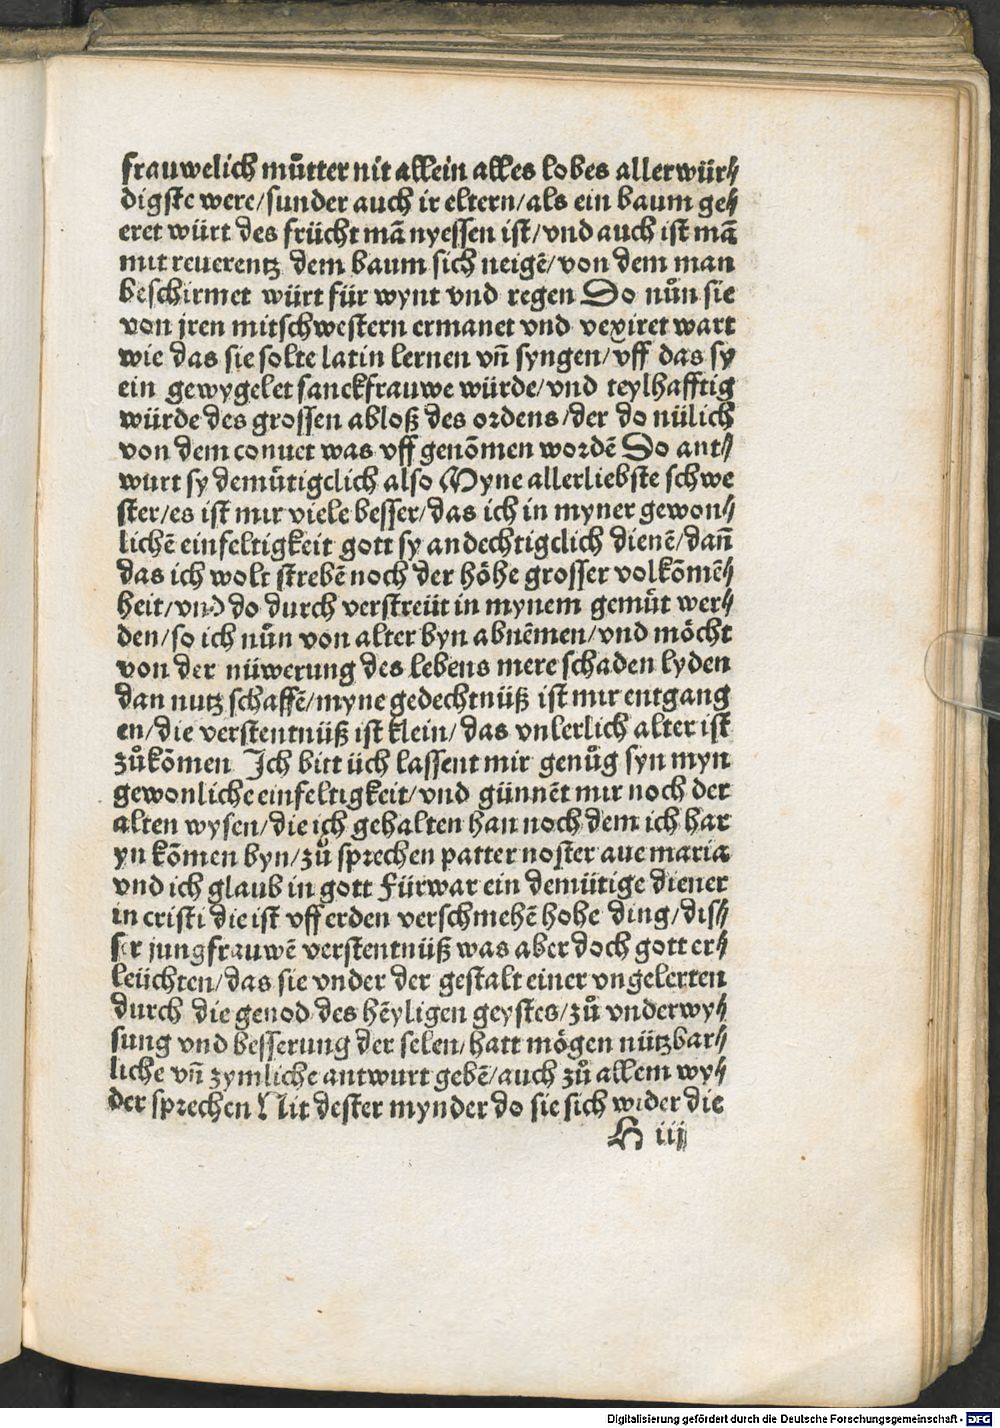 frauwelich můtter nit allein alles lobes allerwür⸗
digste were/sunder auch ir eltern/als ein baum ge⸗
eret würt des frücht mā nyessen ist/vnd auch ist mā
mit reuerentz dem baum sich neigē/von dem man
beschirmet würt für wynt vnd regen So nůn sie
von jren mitschwestern ermanet vnd vexiret wart
wie das sie solte latin lernen vn̄ syngen/vff das sy
ein gewygelet sanckfrauwe würde/vnd teylhafftig
würde des grossen abloß des ordens/der do nülich
von dem conuet was vff genōmen wordē So ant⸗
wurt sy demütigclich also Myne allerliebste schwe
ster/es ist mir viele besser/das ich in myner gewon⸗
lichē einfeltigkeit gott sy andechtigclich dienē/dan̄
das ich wolt strebē noch der höhe grosser volkōmē⸗
heit/vnd do durch verstreüt in mynem gemüt wer⸗
den/so ich nůn von alter byn abnēmen/vnd möcht
von der nüwerung des lebens mere schaden lyden
dan nutz schaffē/myne gedechtnüß ist mir entgang
en/die verstentnüß ist klein/das vnlerlich alter ist
zůkōmen Ich bitt üch lassent mir genůg syn myn
gewonliche einfeltigkeit/vnd günnēt mir noch der
alten wysen/die ich gehalten han noch dem ich har
yn kōmen byn/zů sprechen patter noster aue maria
vnd ich glaub in gott Fürwar ein demütige diener
in cristi die ist vff erden verschmehē hohe ding/dis⸗
ser jungfrauwē verstentnüß was aber doch gott er⸗
leüchten/das sie vnder der gestalt einer vngelerten
durch die genod des hēyligen geystes/zů vnderwy⸗
sung vnd besserung der selen/hatt mögen nützbar⸗
liche vn̄ zymliche antwurt gebē/auch zů allem wy⸗
der sprechen Nit dester mynder do sie sich wider die
H iij
Digitalisierung gefördert durch die Deutsche Forschungsgemeinschaft - DFG